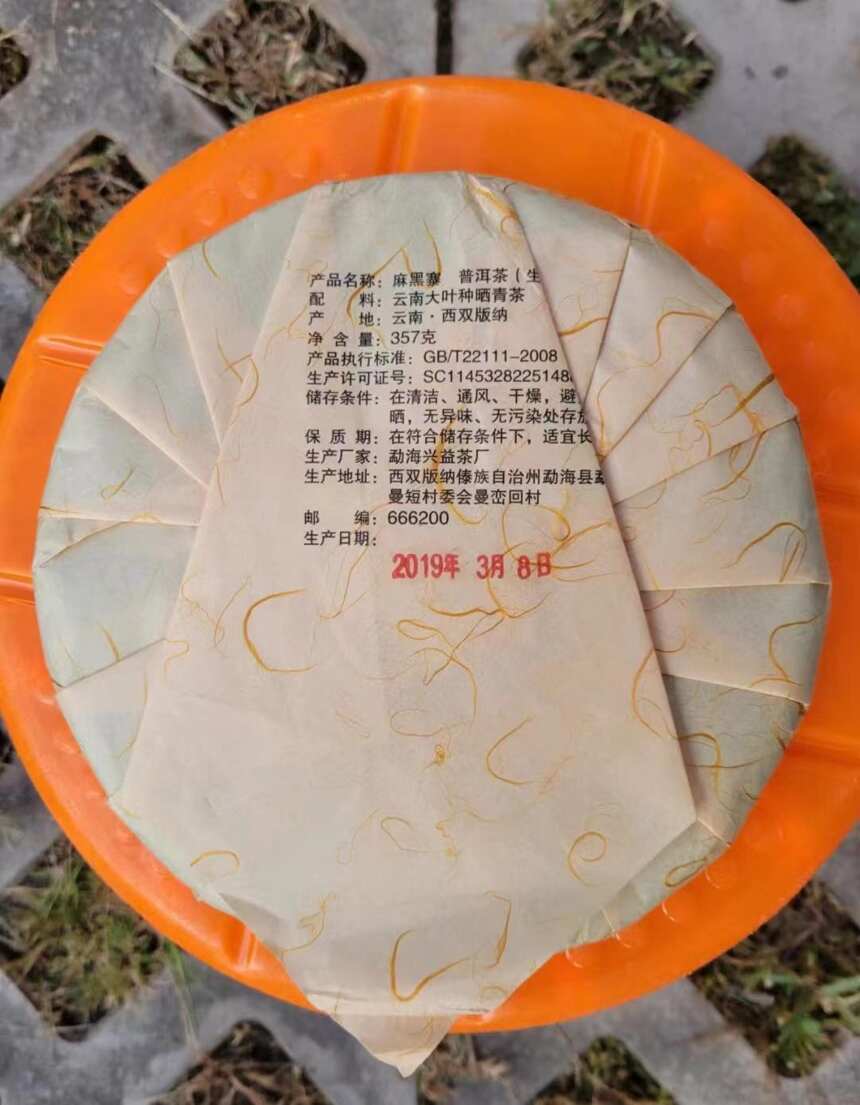 产品名称：麻黑寨 普洱茶（生
配 料：云南大叶种晒青茶
产 地：云南·西双版纳
净 含 量：357克
产品执行标准：GB/T22111-2008
生产许可证号：SC1145328225148
储存条件：在清洁、通风、干燥，避
晒，无异味、无污染处存放
保 质 期：在符合储存条件下，适宜长
生产厂家：勐海兴益茶厂
生产地址：西双版纳傣族自治州勐海县勐
曼短村委会曼峦回村
邮 编：666200
生产日期：
2019年 3月 8日